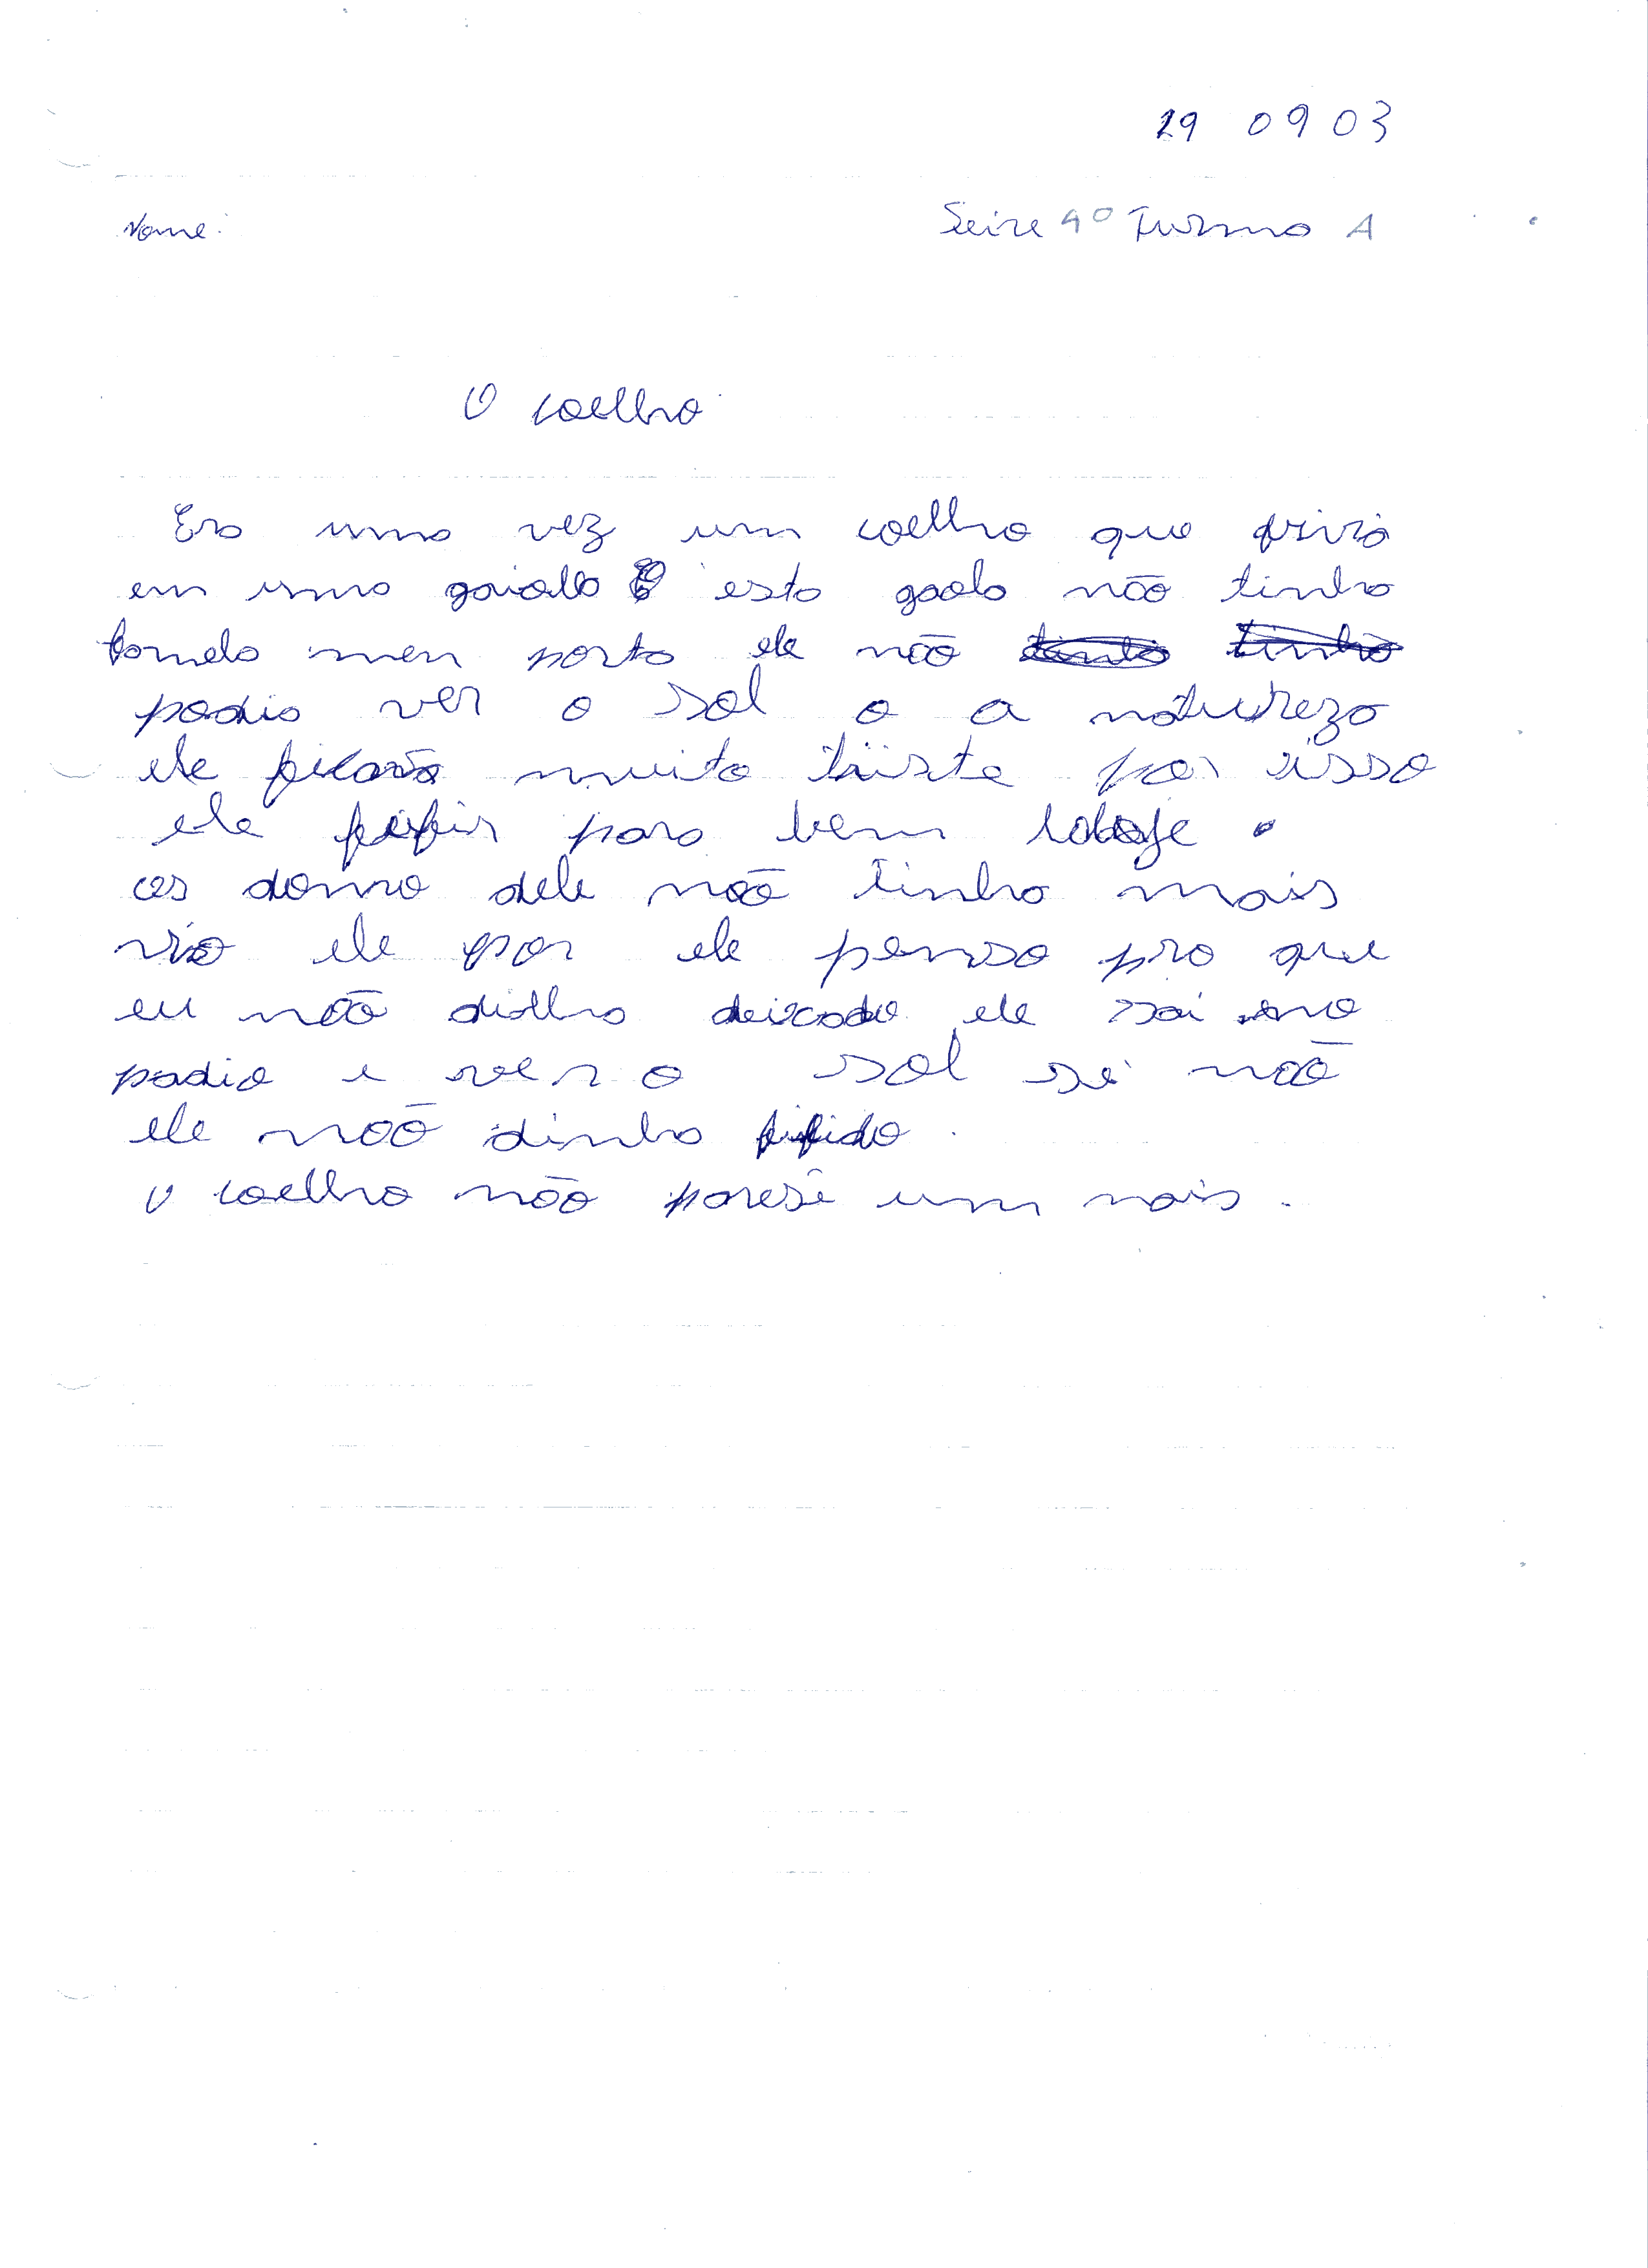 29 09 03
Nome: Seire 4º Turma A
O coelho
Era uma vez um coelho que vivia
em uma gaiolla esta gaola não tinha
nen porta ele não
podia ver o sol o a natureza
ele ficava muito triste por isso
ele para bem
os donno dele não tinha mais
via ele por ele penso pro que
eu não dilha deixado ele sai no
padio e ver o sol se não
ele não dinha
O coelho não parese um mais.